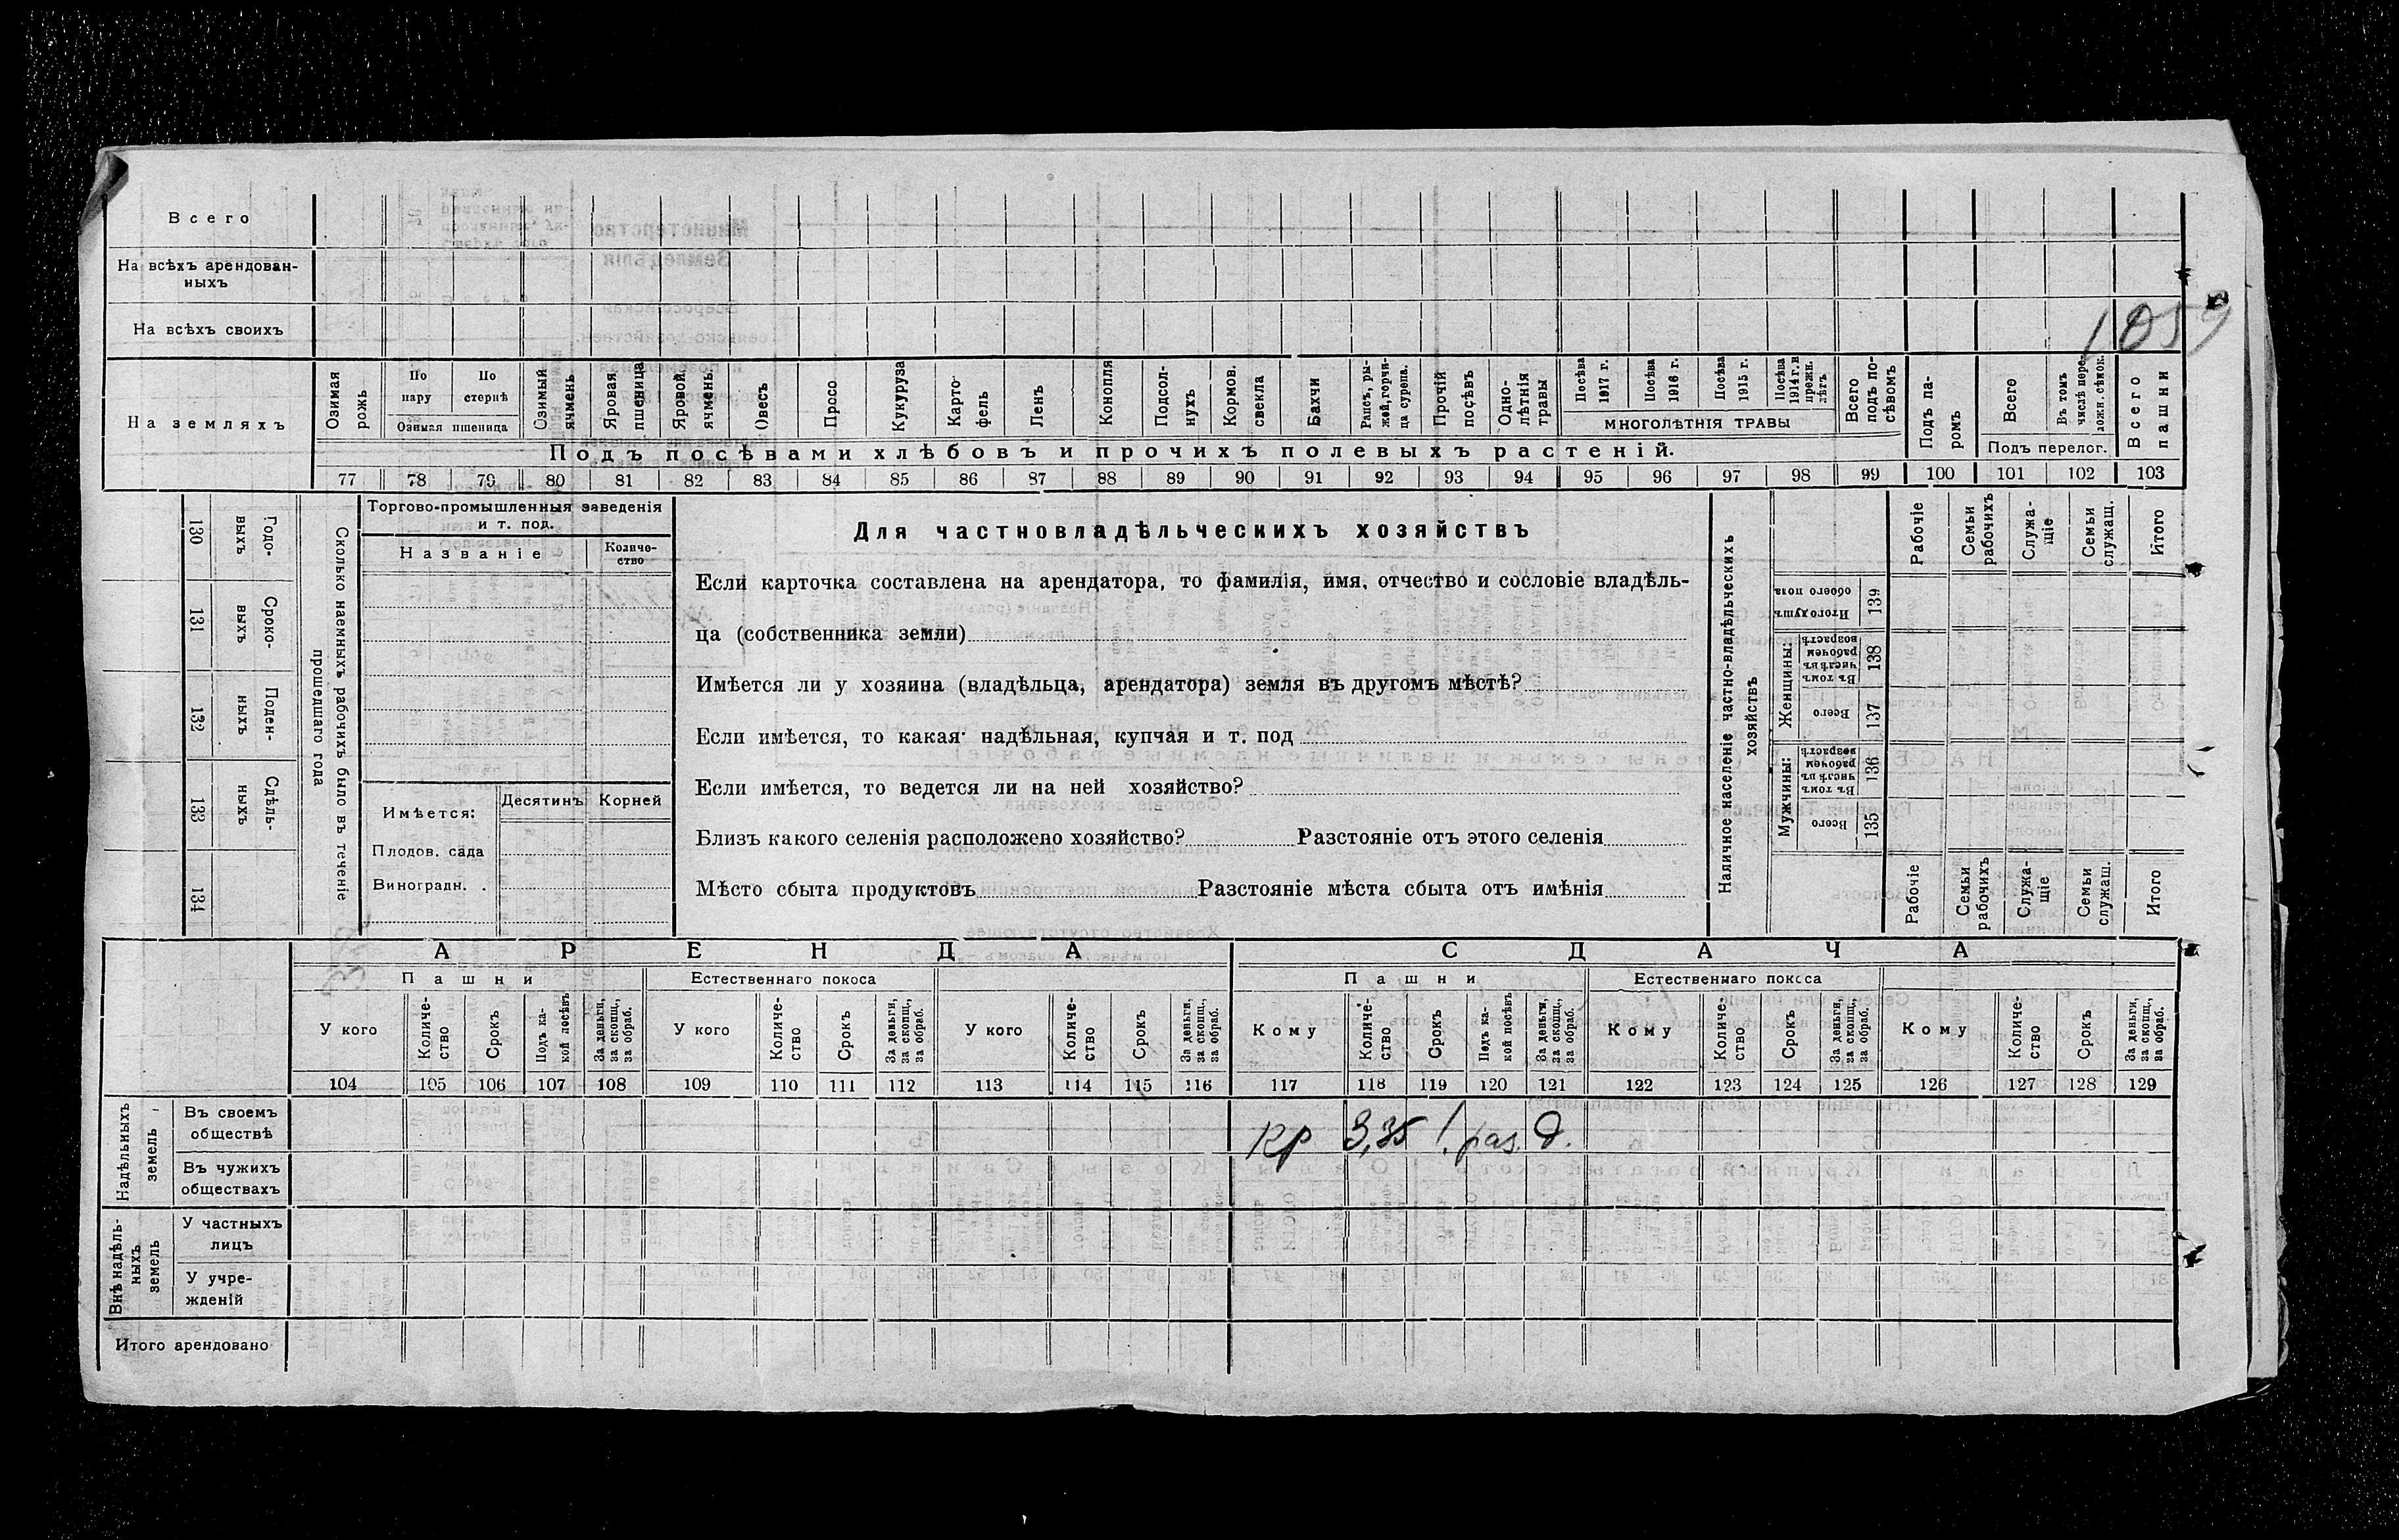 Всего
На всѣхъ арендован-
ныхъ
На всѣхъ своихъ
1059
На земляхъ
Озимая рожь
По пару
По стернѣ
Озимая пшеница
Озимый ячмень
Яровая пшеница
Яровой ячмень
Овесъ
Просо
Кукуруза
Карто-
фель
Ленъ
Конопля
Подсол-
нухъ
Кормов. свекла
Бахчи
Рапсъ, ры-
жей, горчи-
ца сурепа.
Прочій посѣвъ
Одно-
лѣтнія травы
Посѣва 1917 г.
Посѣва 1916 г.
Посѣва 1915 г.
Посѣва 1914 г. и прежн. лѣтъ
МНОГОЛѢТНІЯ ТРАВЫ
Всего подъ по-
сѣвомъ
Подъ па-
ромъ
Всего
Въ томъ числѣ пере-
ложн. сѣнок.
Подъ перелог.
Всего пашни
Подъ посѣвами хлѣбовъ и прочихъ полевыхъ растеній.
77 78 79 80 81 82 83 84 85 86 87 88 89 90 91 92 93 94 95 96 97 98 99 100 101 102 103
130 Годо-
выхъ
131 Сроко-
выхъ
132 Поден-
ныхъ
133 Сдѣль-
ныхъ
134
Сколько наемныхъ рабочихъ было въ теченіе
прошедшаго года
Торгово-промышленныя заведенія
и т. под.
Названіе
Количе-
ство
Имѣется:
Десятинъ
Корней
Плодов. сада
Виноградн. .
Для частновладѣльческихъ хозяйствъ
Если карточка составлена на арендатора, то фамилія, имя, отчество и сословіе владѣль-
ца (собственника земли)
Имѣется ли у хозяина (владѣльца, арендатора) земля въ другомъ мѣстѣ?
Если имѣется, то какая: надѣльная, купчая и т. под
Если имѣется, то ведется ли на ней хозяйство?
Близъ какого селенія расположено хозяйство? Разстояніе отъ этого селенія
Мѣсто сбыта продуктовъ Разстояніе мѣста сбыта отъ имѣнія
Наличное населеніе частно-владѣльческихъ
хозяйствъ
Рабочіе
Семьи рабочихъ
Служа-
щіе
Семьи служащ.
Итого
Итого душъ обоего пола 139
Женщины:
Въ томъ числѣ въ рабочем возрастѣ 138
Всего 137
Мужчины:
Въ томъ числѣ въ рабочем возрастѣ 136
Всего 135
Рабочіе
Семьи рабочихъ
Служа-
щіе
Семьи служащ.
Итого
АРЕНДА
СДАЧА
Пашни
Естественнаго покоса
Пашни
Естественнаго покоса
У кого
Количе-
ство
Срокъ
Подъ ка-
кой посѣвъ
За деньги, за скопщ., за обраб.
У кого
Количе-
ство
Срокъ
За деньги, за скопщ., за обраб.
У кого
Количе-
ство
Срокъ
За деньги, за скопщ., за обраб.
Кому
Количе-
ство
Срокъ
Подъ ка-
кой посѣвъ
За деньги, за скопщ., за обраб.
Кому
Количе-
ство
Срокъ
За деньги, за скопщ., за обраб.
Кому
Количе-
ство
Срокъ
За деньги, за скопщ., за обраб.
104 105 106 107 108 109 110 111 112 113 114 115 116 117 118 119 120 121 122 123 124 125 126 127 128 129
Надѣльныхъ земель
Въ своемъ
обществѣ
Кр 3,35 1. раз. д.
Въ чужихъ
обществахъ
Внѣ надѣль-
ныхъ земель
У частныхъ
лицъ
У учре-
жденій
Итого арендовано